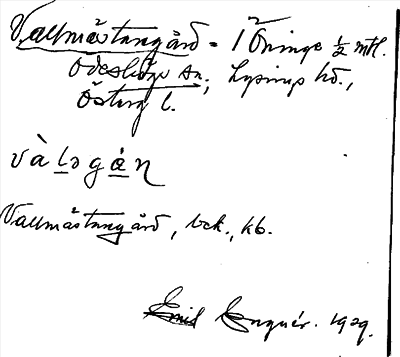 Vallmästaregård = 1 Öninge ½ mtl.
Ödeshögs sn., Lysings hd.,
Österg l.
vàlagάn
Vallmästaregård, bek., kb.
Emil Enquér. 1929.